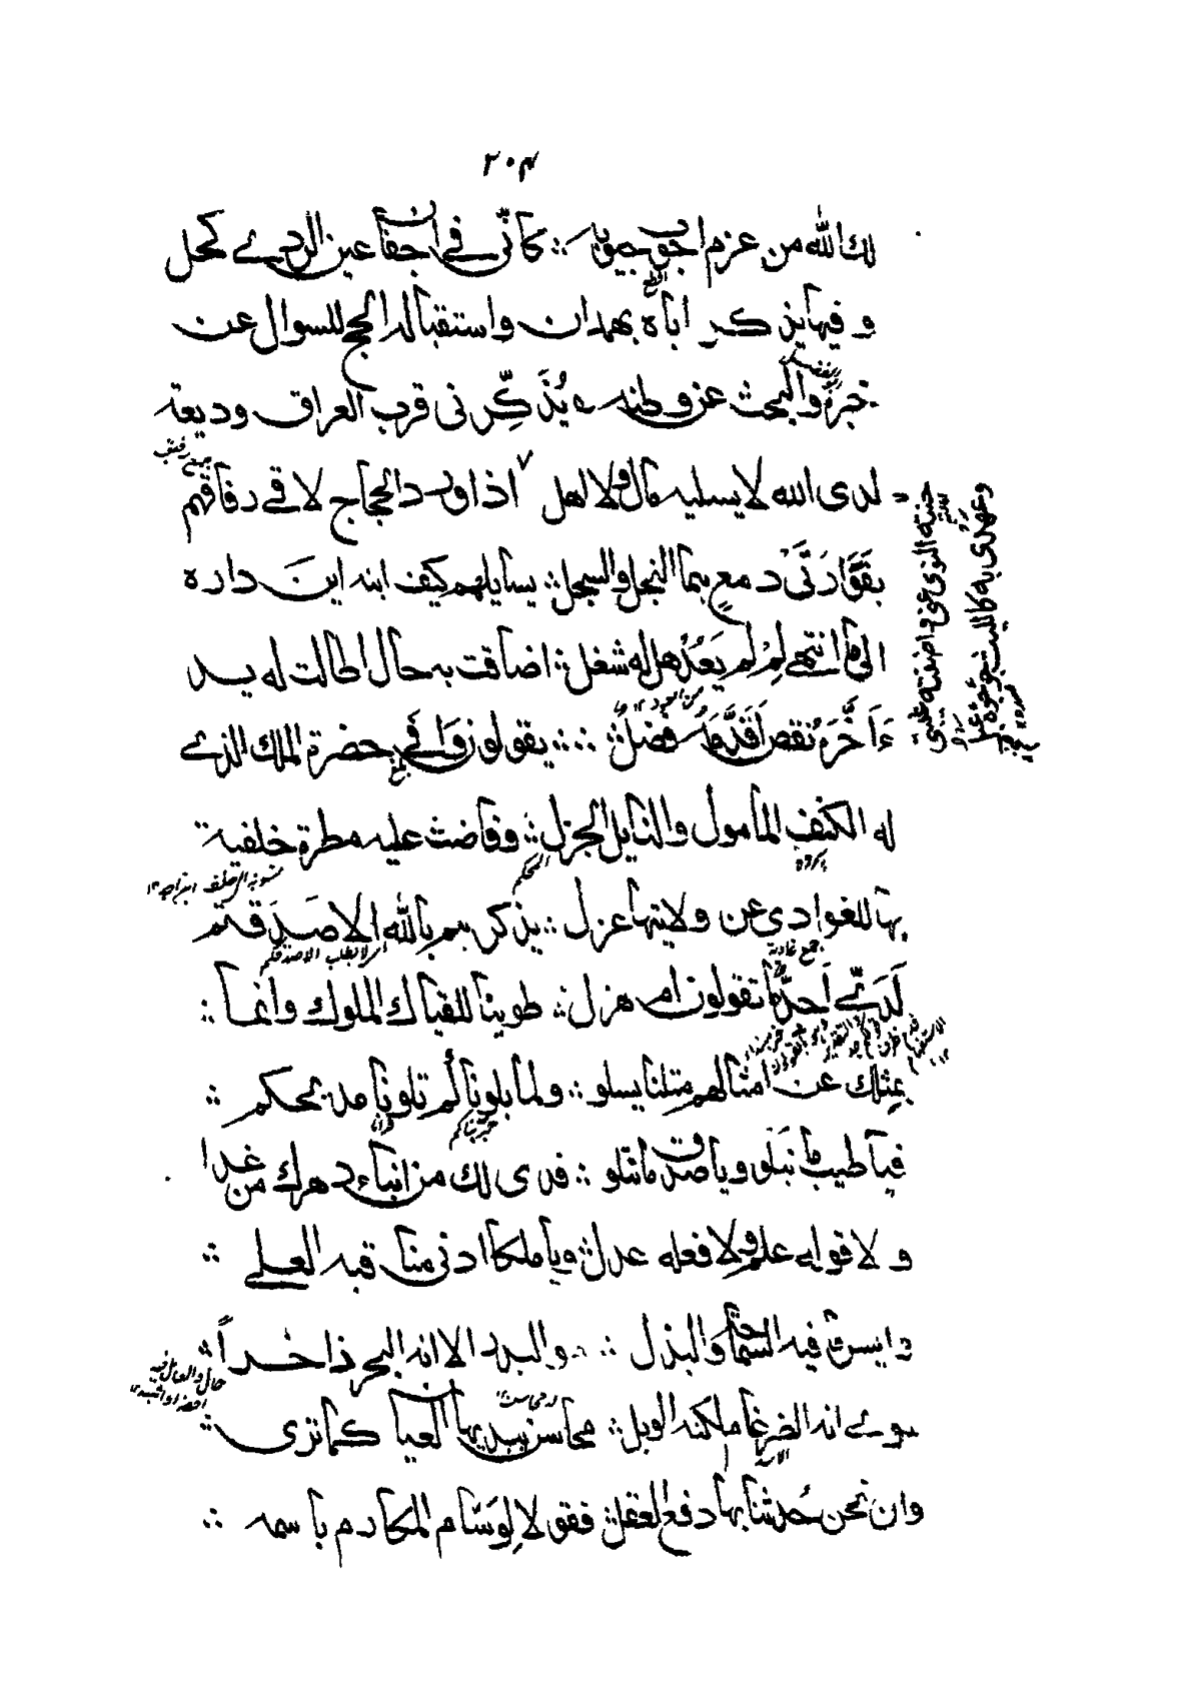 ٢٠٤
لك الله من عزم اجوب جيوبه ∴ كأنّي في اجفان عين الردى كحل
وفيها يذكر اباه بهمدان واستقباله الحجيج للسوال عن
خبره والبحث عن وطنه يُذَكِّرني قرب العراق وديعة
لدى الله لا يسليه مال ولا اهل ∴ اذا ورد الحجاج لاقى رفاقهم
جمع رفيق
بفوارتي دمع بها النجل والسجل ∴ يسايلهم كيف ابنه اين داره
الى م انتهى لِمْ لم يَعُدْ هل له شغل ∴ اضاقت به حال اطالت له يد
ءَاَخَّرَه نقص اَقَدَّمه فضل ∴ يقولون وافى حضرة الملك الذي
له الكنف المأمول والنايل الجزل ∴ وفاضت عليه مطرة خلفية
بها للغوادي عن ولايتها عزل ∴ يذكرهم بالله الا صَدَقتم
جمع غادية
لَدَيَّ اَجِدٌّ ما تقولون ام هزل ∴ طوينا للقياك الملوك وانما ∴
بمثلك عن امثالهم مثلنا يسلو ∴ ولما بلوناكم تلونا مديحكم ∴
فيا طيب ما نبلو ويا صدق ما نتلو ∴ فدى لك من ابناء دهرك من غدا
ولا قوله علم ولا فعله عدل ∴ ويا ملكا ادنى مناقبه العلى ∴
وايسر ما فيه السماحة والبذل ∴ هو البدر الا انه البحر ذاخراً ∴
سوى انه الضرغام لكنه الوبل ∴ محاسن يبديها العيان كما ترى ∴
الاسد
وان نحن حُدثنا بها دفع العقل ∴ فقولا لِوَسّام المكارم باسمه ∴